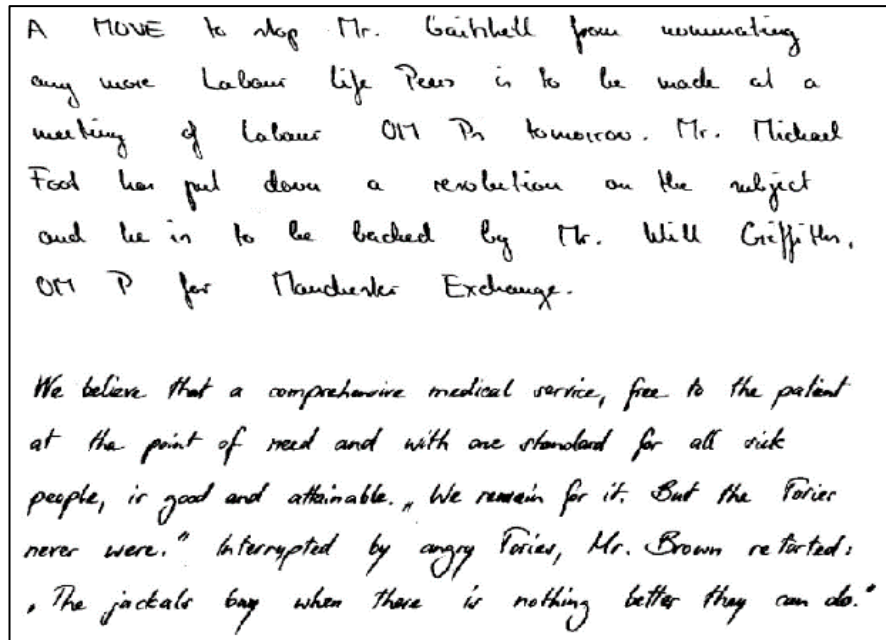 A MOVE to stop Mr. Gaitskell from nominating
any more Labour Life Peers is to be made at a
meeting of Labour OM Ps tomorrow. Mr. Michael
Foot has put down a resolution on the subject
and he is to be backed by Mr. Will Griffiths,
OM P for Manchester Exchange.
We believe that a comprehensive medical service, free to the patient
at the point of need and with one standard for all sick
people, is good and attainable. „We remain for it. But the Tories
never were." Interrupted by angry Tories, Mr. Brown retorted:
„The jackals bay when there is nothing better they can do."